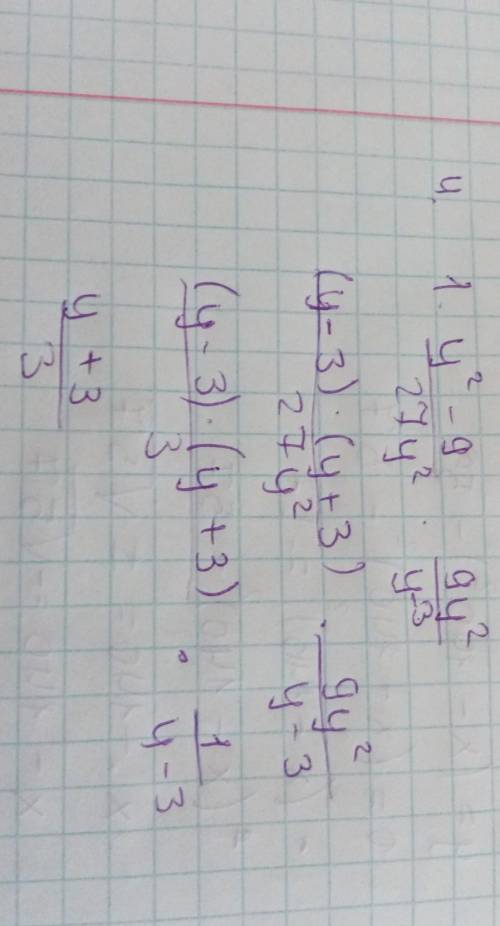 4.
1. (y² - 9)/(27y²) · (9y²)/(y-3)
((y-3)·(y+3))/(27y²) · (9y²)/(y-3)
((y-3)·(y+3))/3 · 1/(y-3)
(y+3)/3